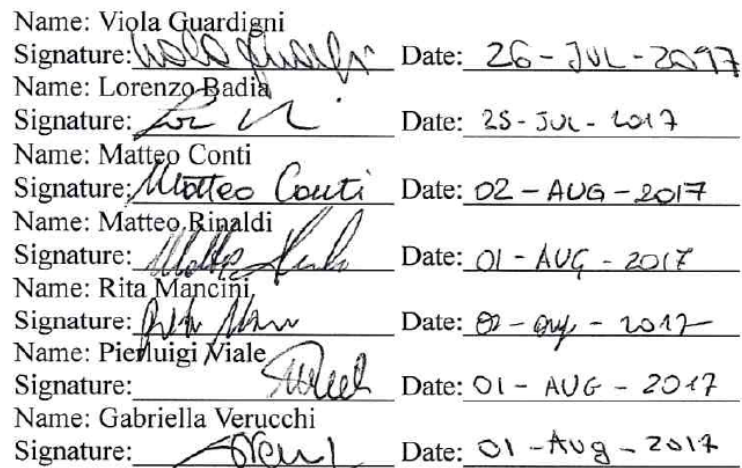 Name: Viola Guardigni
Signature: Date: 26-JUL-2017
Name: Lorenzo Badia
Signature: Date: 25-JUL-2017
Name: Matteo Conti
Signature: Matteo Conti Date: 02-AUG-2017
Name: Matteo Rinaldi
Signature: Date: 01-AUG-2017
Name: Rita Mancini
Signature: Date: 2017
Name: Pierluigi Viale
Signature: Date: 01-AUG-2017
Name: Gabriella Verucchi
Signature: Date: 01-Aug-2017